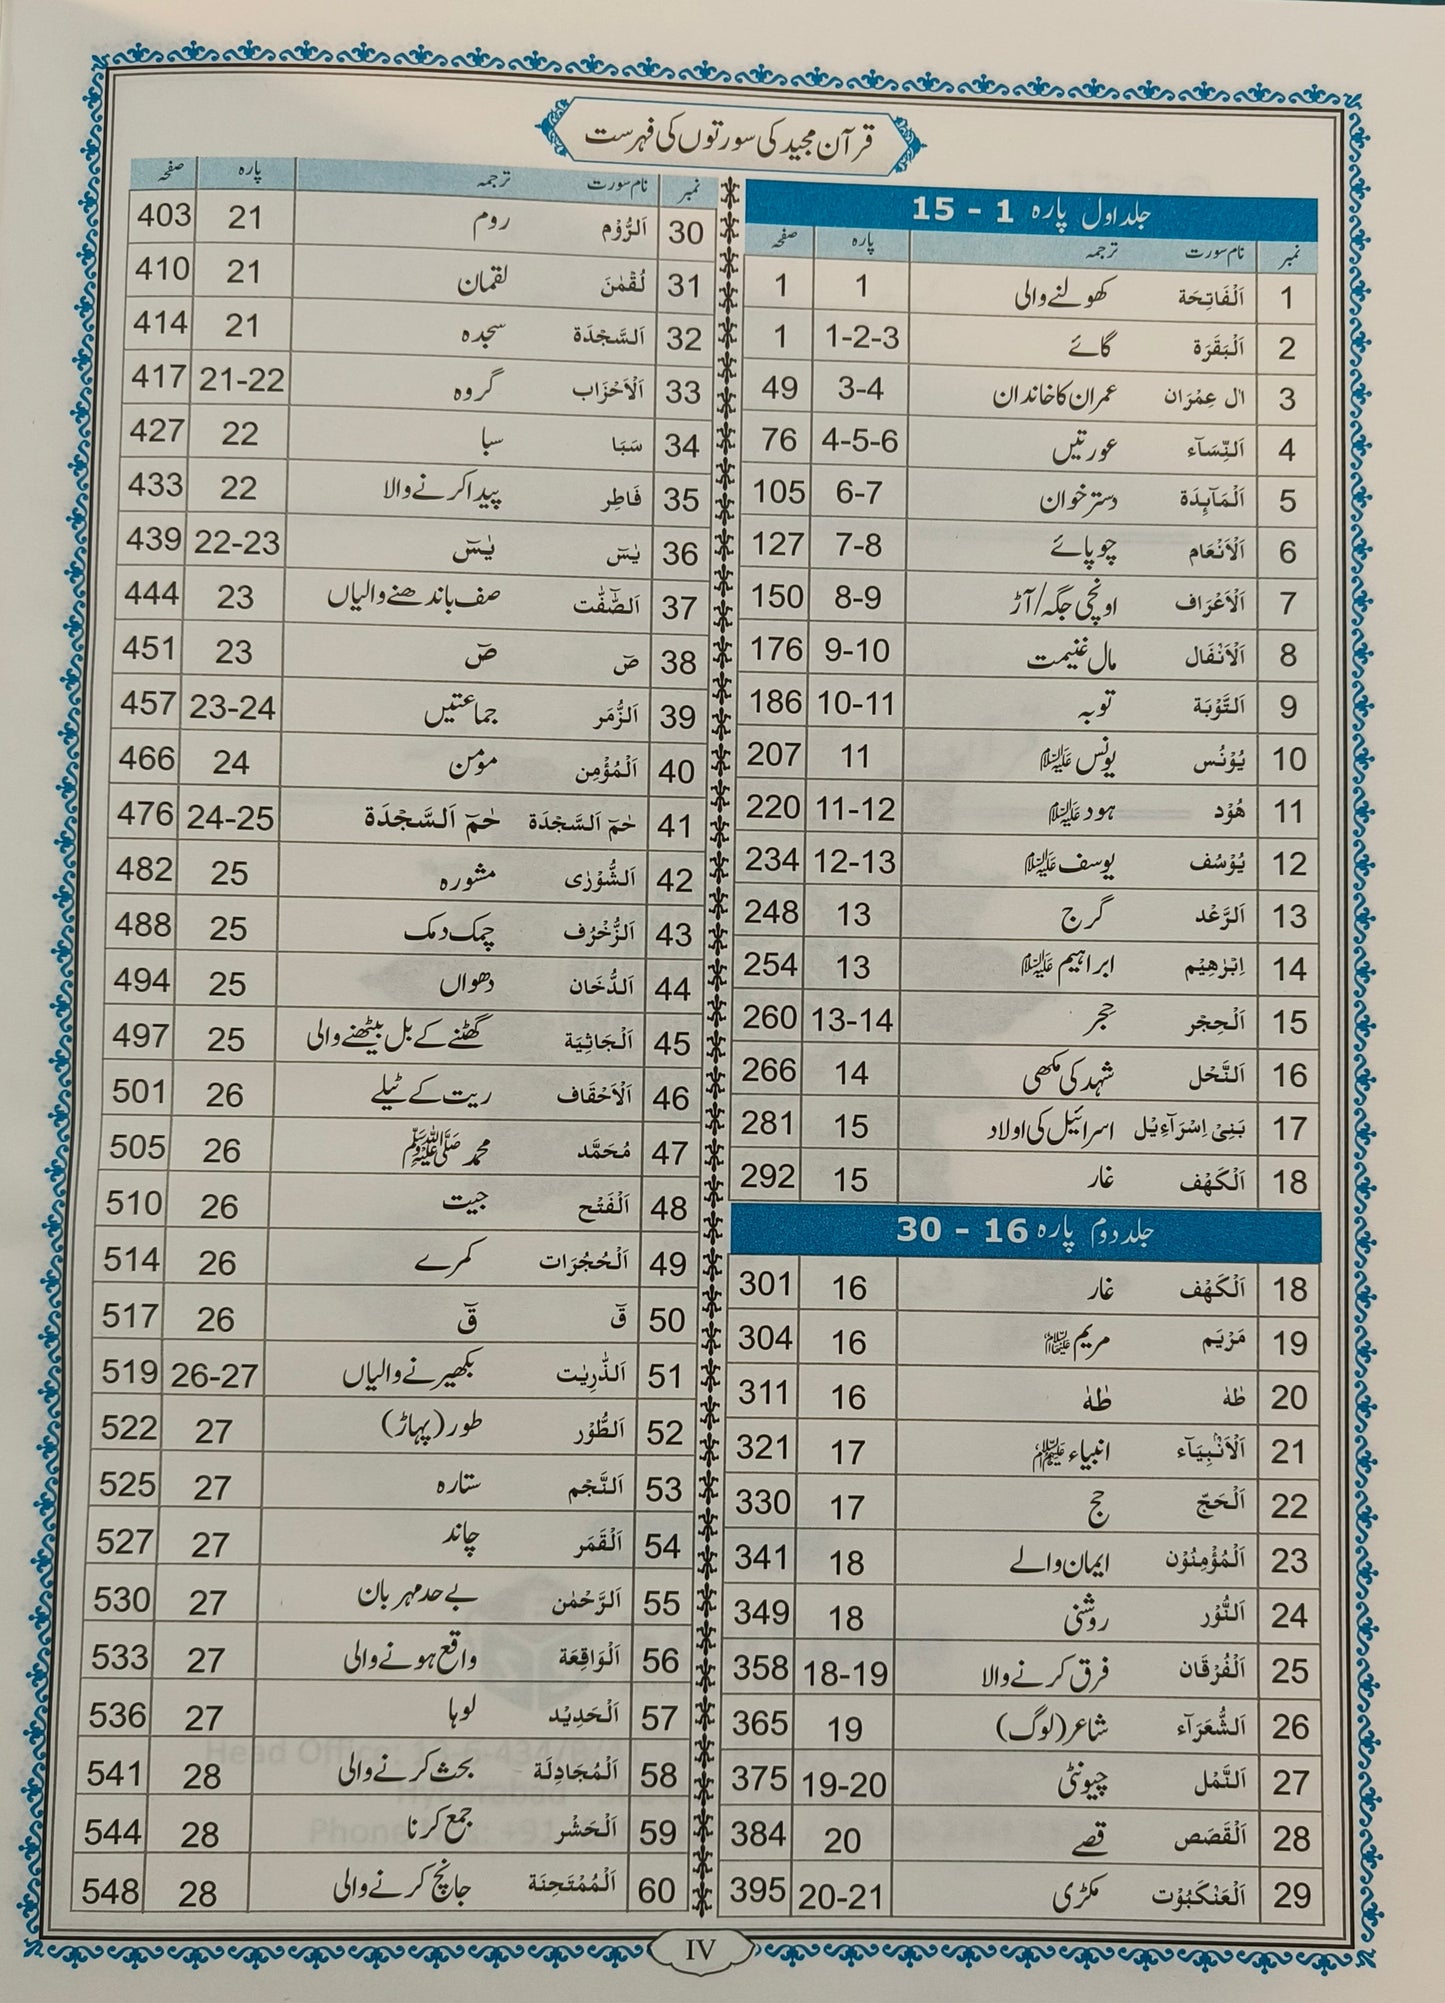 قرآن مجید کی سورتوں کی فہرست
جلد اول پارہ 1 - 15
نمبر نام سورت ترجمہ پارہ صفحہ
1 اَلْفَاتِحَة کھولنے والی 1 1
2 اَلْبَقَرَة گائے 1-2-3 1
3 اٰل عِمْرَان عمران کا خاندان 3-4 49
4 اَلنِّسَآء عورتیں 4-5-6 76
5 اَلْمَآىِٕدَة دستر خوان 6-7 105
6 اَلْاَنْعَام چوپائے 7-8 127
7 اَلْاَعْرَاف اونچی جگہ/آڑ 8-9 150
8 اَلْاَنْفَال مال غنیمت 9-10 176
9 اَلتَّوْبَة توبہ 10-11 186
10 يُوْنُس یونس علیہ السلام 11 207
11 هُوْد ہود علیہ السلام 11-12 220
12 يُوْسُف یوسف علیہ السلام 12-13 234
13 اَلرَّعْد گرج 13 248
14 اِبْرٰهِيْم ابراہیم علیہ السلام 13 254
15 اَلْحِجْر حجر 13-14 260
16 اَلنَّحْل شہد کی مکھی 14 266
17 بَنِيْ اِسْرَآءِيْل اسرائیل کی اولاد 15 281
18 اَلْكَهْف غار 15 292
جلد دوم پارہ 16 - 30
18 اَلْكَهْف غار 16 301
19 مَرْيَم مریم علیہا السلام 16 304
20 طٰهٰ طٰهٰ 16 311
21 اَلْاَنْۢبِيَآء انبیاء علیہم السلام 17 321
22 اَلْحَجّ حج 17 330
23 اَلْمُؤْمِنُوْن ایمان والے 18 341
24 اَلنُّوْر روشنی 18 349
25 اَلْفُرْقَان فرق کرنے والا 18-19 358
26 اَلشُّعَرَآء شاعر (لوگ) 19 365
27 اَلنَّمْل چیونٹی 19-20 375
28 اَلْقَصَص قصے 20 384
29 اَلْعَنْكَبُوْت مکڑی 20-21 395
نمبر نام سورت ترجمہ پارہ صفحہ
30 اَلرُّوْم روم 21 403
31 لُقْمٰن لقمان 21 410
32 اَلسَّجْدَة سجدہ 21 414
33 اَلْاَحْزَاب گروہ 21-22 417
34 سَبَا سبا 22 427
35 فَاطِر پیدا کرنے والا 22 433
36 يٰسٓ يٰسٓ 22-23 439
37 اَلصّٰٓفّٰت صف باندھنے والیاں 23 444
38 صٓ صٓ 23 451
39 اَلزُّمَر جماعتیں 23-24 457
40 اَلْمُؤْمِن مومن 24 466
41 حٰمٓ اَلسَّجْدَة حٰمٓ اَلسَّجْدَة 24-25 476
42 اَلشُّوْرٰى مشورہ 25 482
43 اَلزُّخْرُف چمک دمک 25 488
44 اَلدُّخَان دھواں 25 494
45 اَلْجَاثِيَة گھٹنے کے بل بیٹھنے والی 25 497
46 اَلْاَحْقَاف ریت کے ٹیلے 26 501
47 مُحَمَّد محمد ﷺ 26 505
48 اَلْفَتْح جیت 26 510
49 اَلْحُجُرَات کمرے 26 514
50 قٓ قٓ 26 517
51 اَلذّٰرِيٰت بکھیرنے والیاں 26-27 519
52 اَلطُّوْر طور (پہاڑ) 27 522
53 اَلنَّجْم ستارہ 27 525
54 اَلْقَمَر چاند 27 527
55 اَلرَّحْمٰن بے حد مہربان 27 530
56 اَلْوَاقِعَة واقع ہونے والی 27 533
57 اَلْحَدِيْد لوہا 27 536
58 اَلْمُجَادِلَة بحث کرنے والی 28 541
59 اَلْحَشْر جمع کرنا 28 544
60 اَلْمُمْتَحِنَة جانچ کرنے والی 28 548
IV